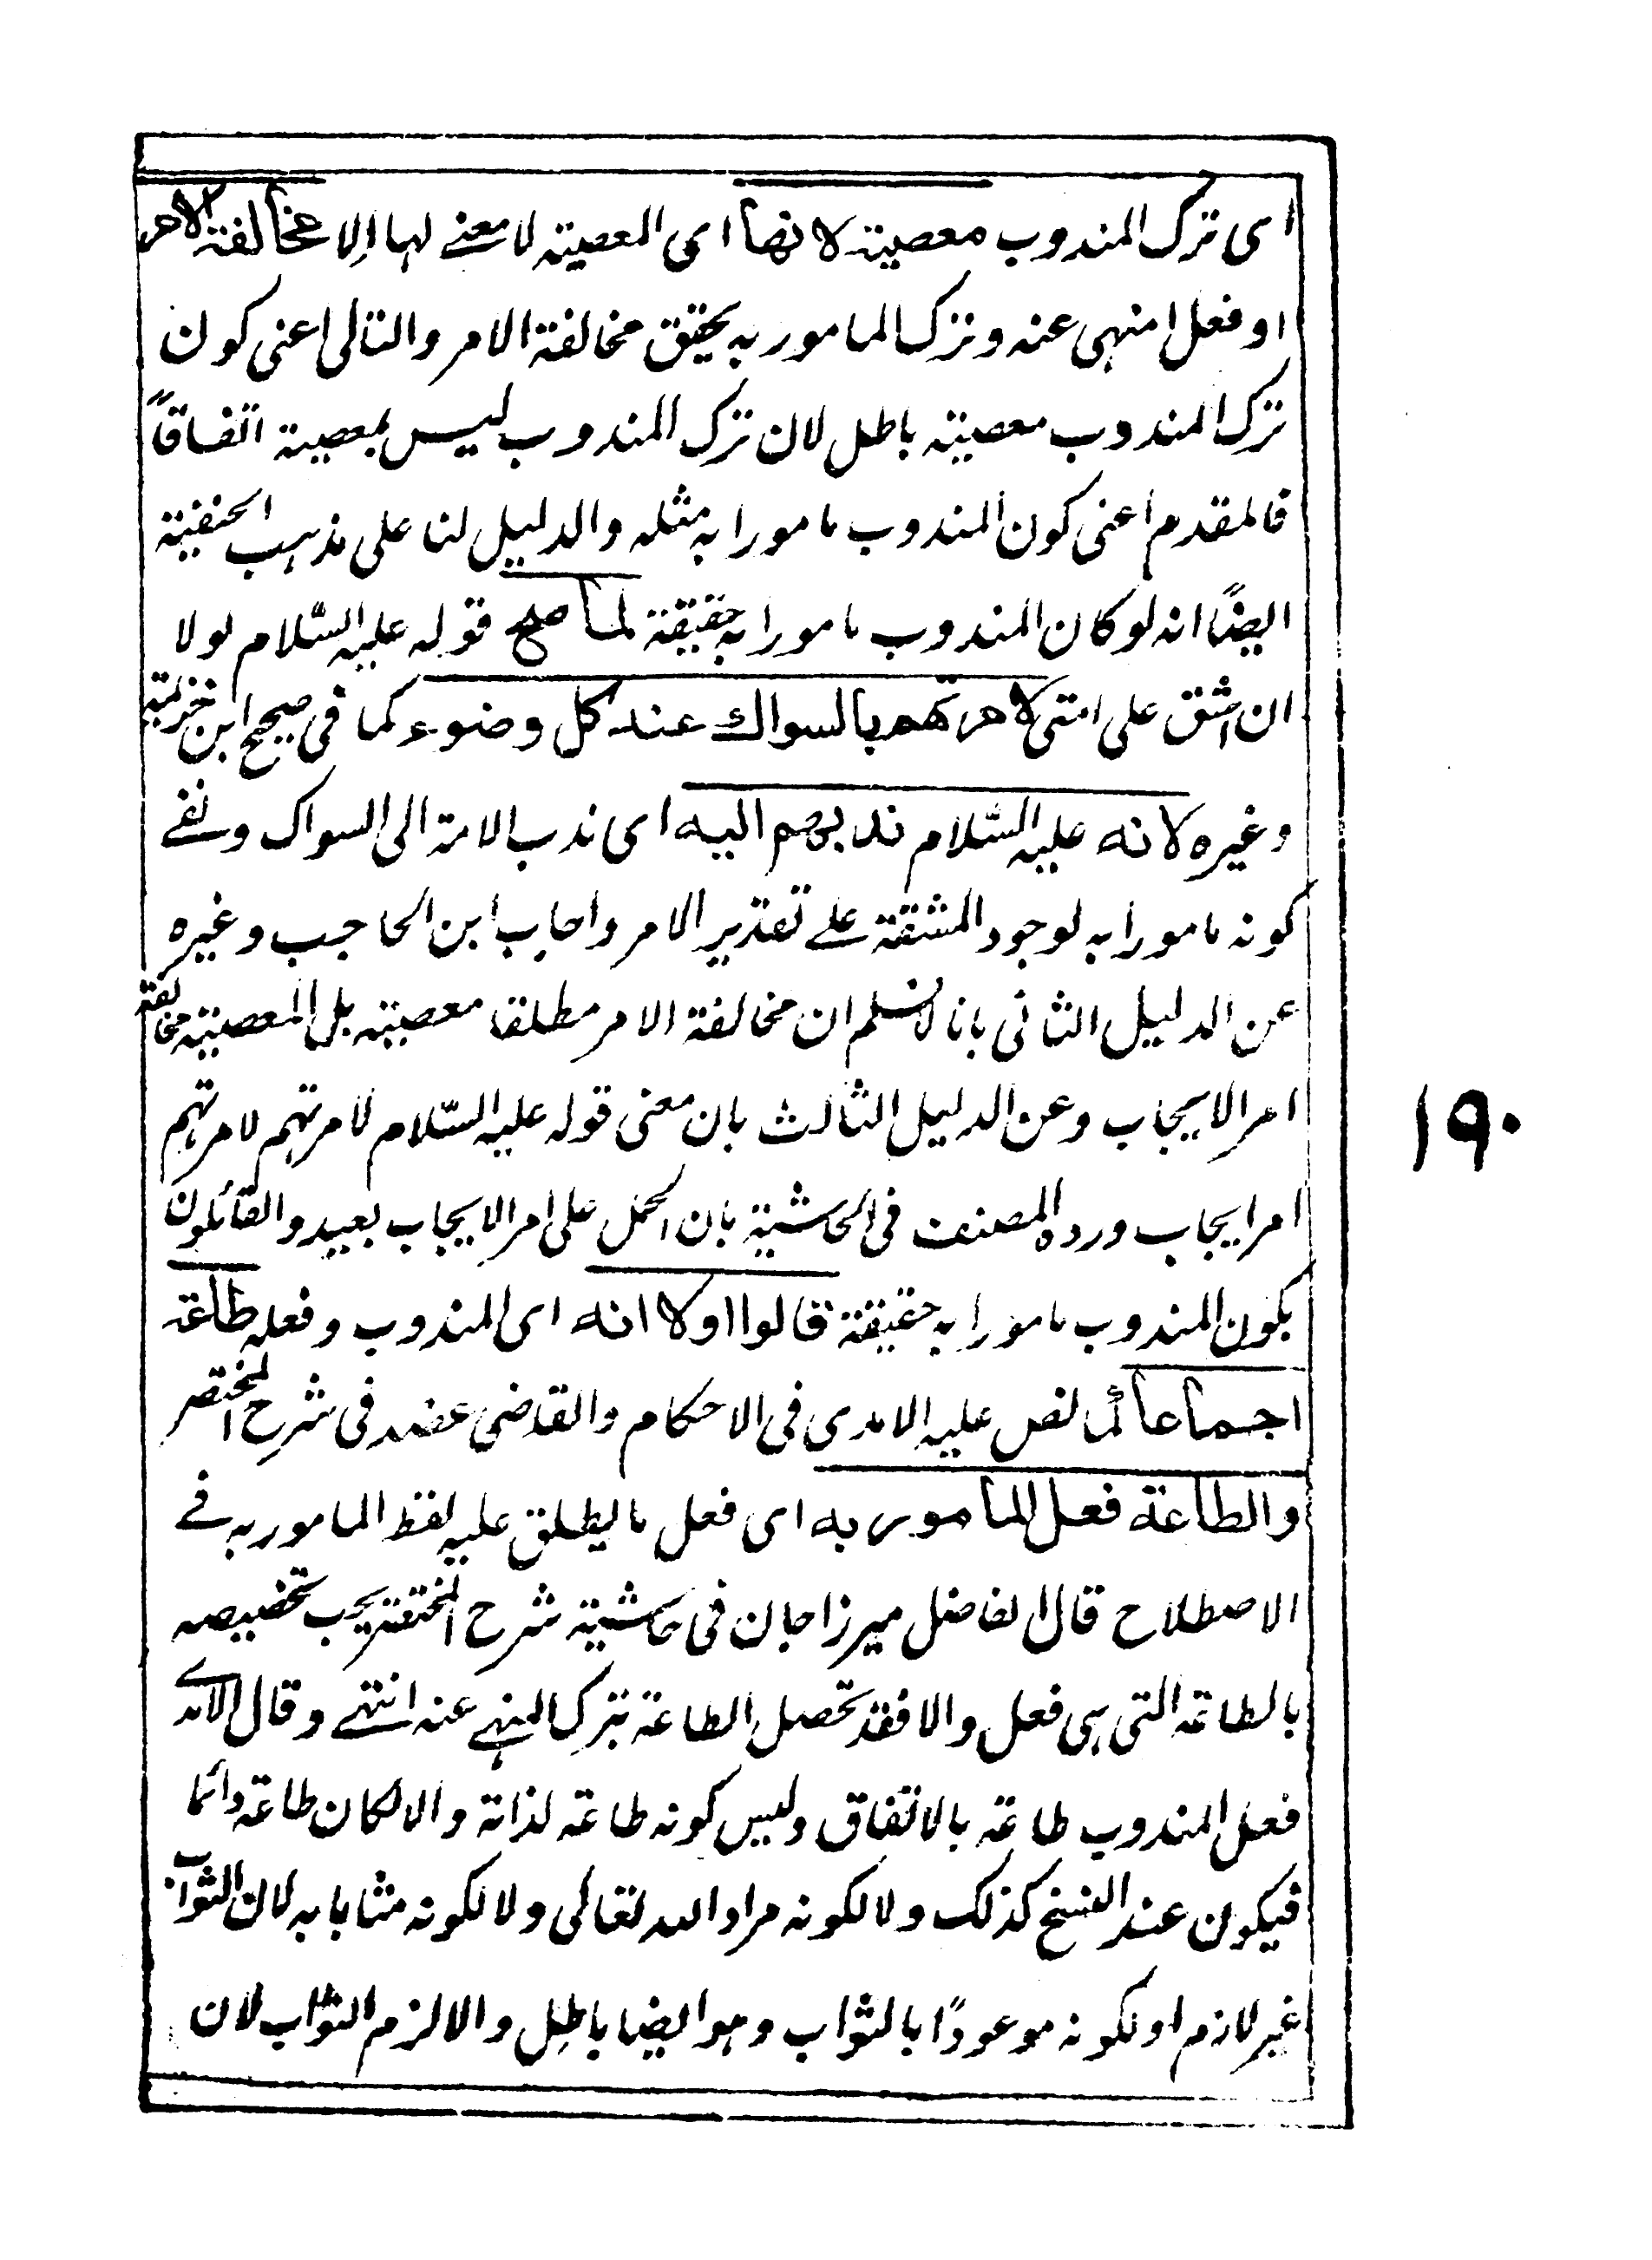 اى ترك المندوب معصية لانها اى المعصية لا معنى لها الا مخالفة الامر
او فعل امنهى عنه وترك المامور به يحقق مخالفة الامر والتالى اعنى كون
ترك المندوب معصية باطل لان ترك المندوب ليس بمعصية اتفاقاً
فالمقدم اعنى كون المندوب مامورا به مثله والدليل لنا على مذهب الحنفية
ايضًا انه لو كان المندوب مامورا به حقيقة لما صح قوله عليه السّلام لولا
ان اشق على امتى لامرتهم بالسواك عند كل وضوء كما فى صحيح ابن خزيمة
وغيره لانه عليه السّلام ندبهم اليه اى ندب الامة الى السواك ونفى
كونه مامورا به لوجود المشقة على تقدير الامر واجاب ابن الحاجب وغيره
عن الدليل الثانى بانا لا نسلم ان مخالفة الامر مطلقا معصية بل المعصية مخالفة
امر الايجاب وعن الدليل الثالث بان معنى قوله عليه السّلام لامرتهم لامرتهم
امر ايجاب ورده المصنف فى الحاشية بان الحمل على امر الايجاب بعيد والقائلون
بكون المندوب مامورا به حقيقة قالوا اولا انه اى المندوب وفعله طاعة
اجماعا لما نص عليه الامدى فى الاحكام والقاضى عضد فى شرح المختصر
والطاعة فعل المامور به اى فعل ما يطلق عليه لفظ المامور به فى
الاصطلاح قال الفاضل ميرزا جان فى حاشية شرح المختصر يجب تخصيصه
بالطاعة التى هى فعل والا فقد تحصل الطاعة بترك المنهى عنه انتهى وقال الامدى
فعل المندوب طاعة بالاتفاق وليس كونه طاعة لذاته والا لكان طاعة دائما
فيكون عند النسخ كذلك ولا لكونه مراد الله تعالى ولا لكونه مثابا به لان الثواب
غير لازم او لكونه موعودًا بالثواب وهو ايضا باطل والا لزم الثواب لان
١٩٠